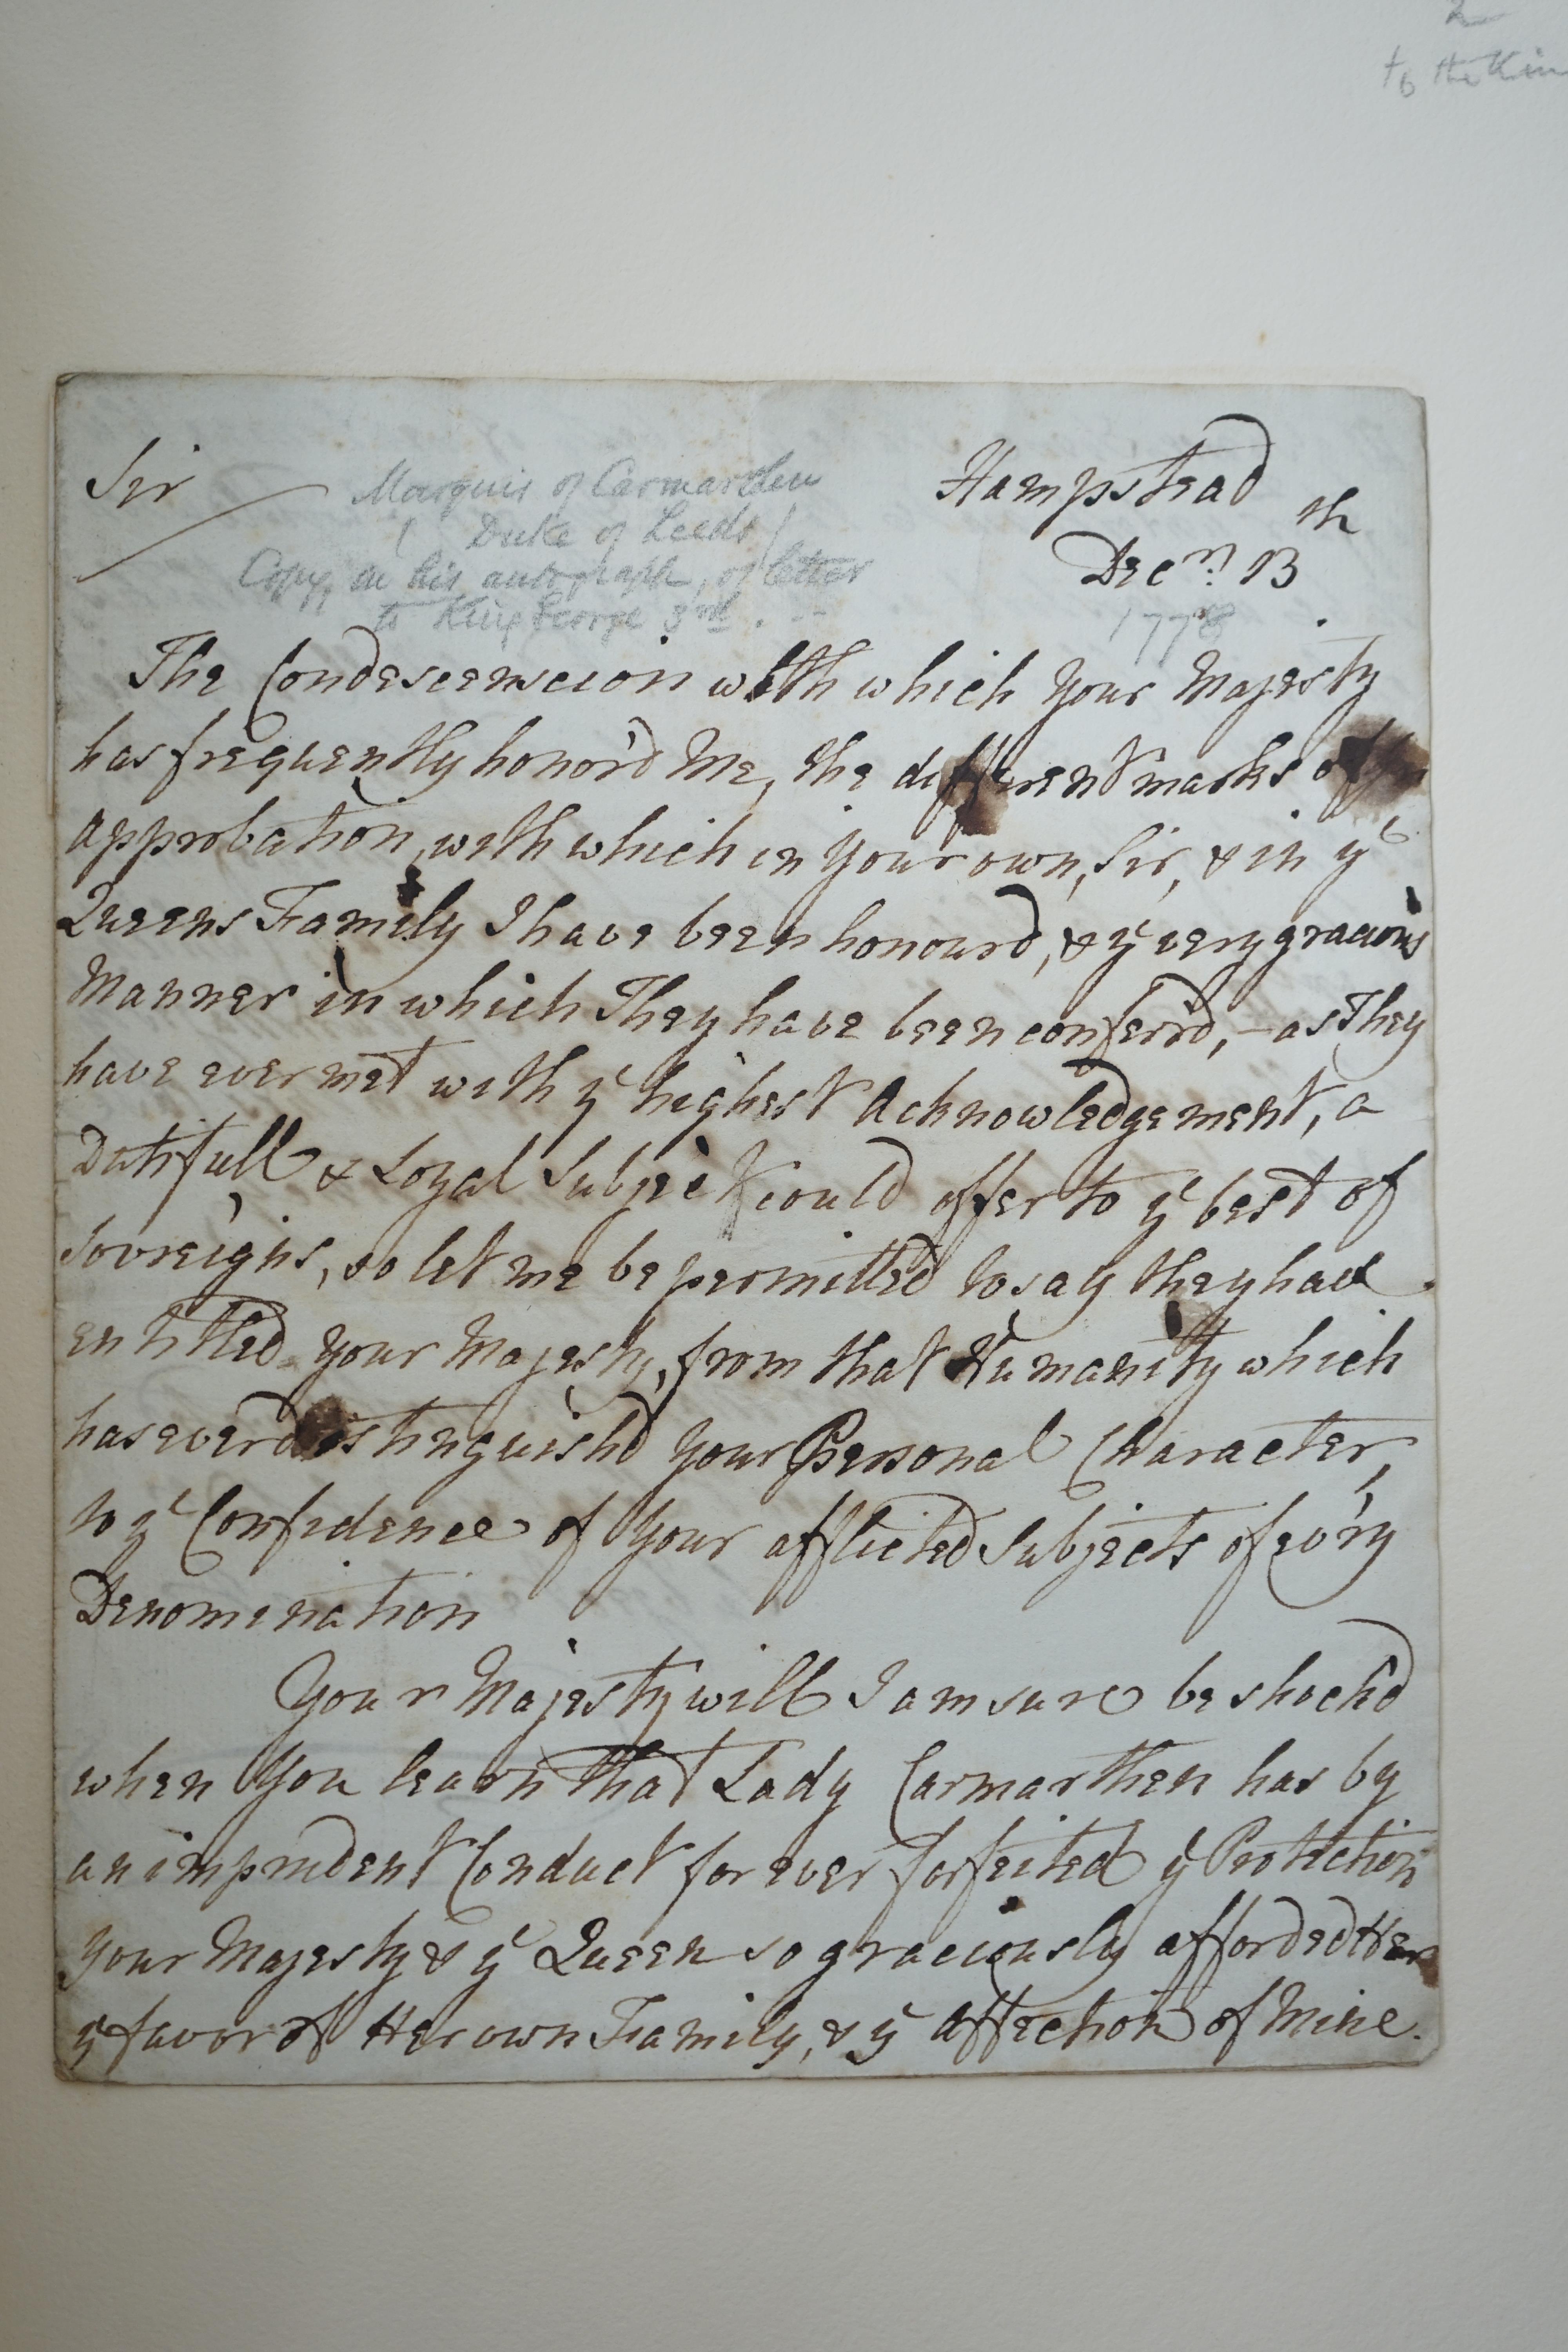 2
to the Kin
Sir
Marquis of Carmarthen
( Duke of Leeds )
Copy, in his autograph, of letter
to King George 3rd. --
Hampstead
Decr. 13th
1778
The Condescenscion with which Your Majesty
has frequently honor'd Me, the different marks of
approbation, with which in Your own, Sir, & in ye
Queens Family I have been honourd, & ye very gracious
Manner in which They have been conferr'd, – as They
have ever met with ye highest Acknowledgement, a
Dutifull & Loyal Subject could offer to ye best of
Sovreigns, so let me be permitted to say they have
entitled Your Majesty, from that Humanity which
has ever distinguish'd Your Personal Character,
to ye Confidence of Your afflicted Subjects of ev'ry
Denomination
Your Majesty will I am sure be shock'd
when You learn that Lady Carmarthen has by
an imprudent Conduct for ever forfeited ye Protection
Your Majesty & ye Queen so graciously afforded Her
ye favor of Her own Family, & ye Affection of Mine.